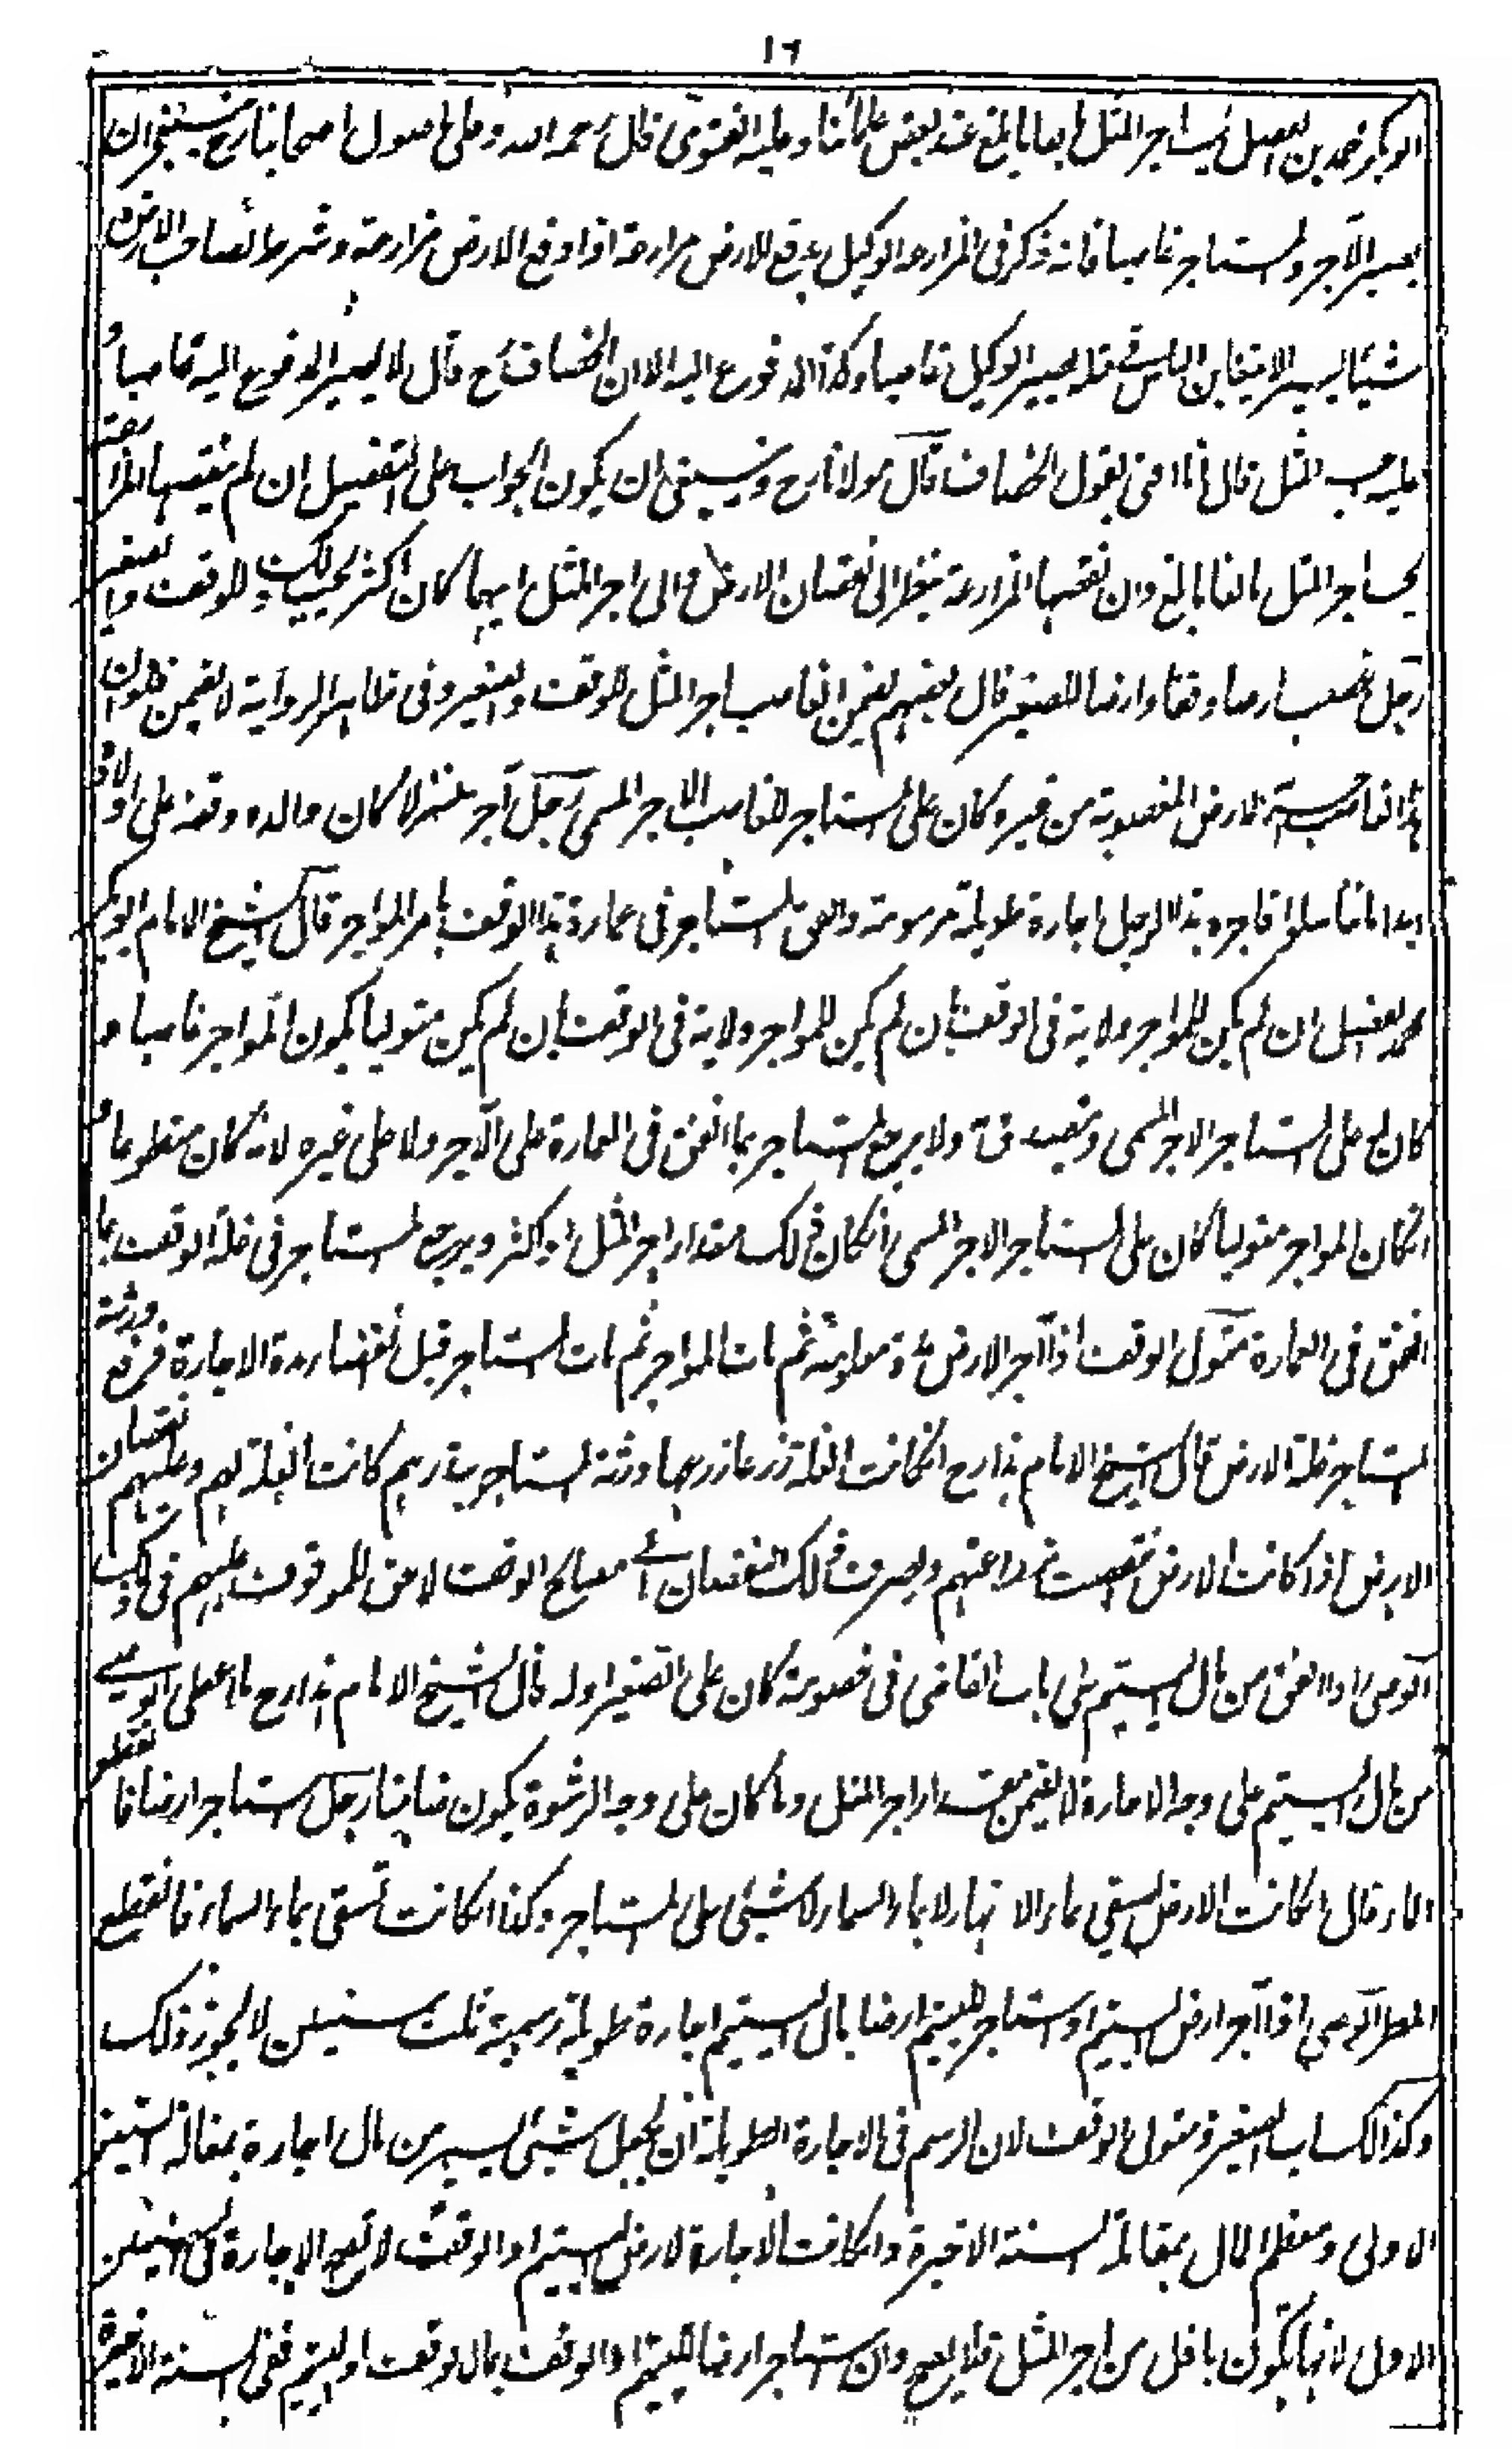 ١٦
ابو بكر محمد بن الفضل يجب اجر المثل بالغا ما بلغ عند بعض علمائنا وعليه الفتوى قال رحمه الله وعلى اصول اصحابنا رح ينبغى ان
يصير الآجر والمستاجر غاصبا فانه ذكر فى المزارعة الوكيل بدفع الارض مزارعة اذا دفع الارض مزارعة وشرط لصاحب الارض
شيئا يسيرا لا يتغابن الناس فى مثله يصير الوكيل غاصبا وكذا المدفوع اليه الا ان الخصاف رح قال لا يصير المدفوع اليه غاصبا و
عليه اجر المثل قال انا افتى بقول الخصاف قال مولانا رح وينبغى ان يكون الجواب على التفصيل ان لم ينقصها المزارعة
يجب اجر المثل بالغا ما بلغ وان نقصها المزارعة ينظر الى نقصان الارض والى اجر المثل ايهما كان اكثر يجب ذلك للوقف والصغير
رجل غصب ارضا وقفا او ارضا للصغير قال بعضهم يضمن الغاصب اجر المثل للوقف والصغير وفى ظاهر الرواية لا يضمن فلو ان
هذا الغاصب آجر الارض المغصوبة من غيره كان على المستاجر للغاصب الاجر المسمى رجل آجر منزلا كان والده وقفه على اولاده
ابدا ما تناسلوا فاجره هذا الرجل اجارة طويلة مرسومة وانفق المستاجر فى عمارة هذا الوقف بامر المواجر قال الشيخ الامام ابو بكر
محمد بن الفضل ان لم يكن للمواجر ولاية فى الوقف بان لم يكن للمواجر ولاية فى الوقف بان لم يكن متوليا يكون المواجر غاصبا و
كان له على المستاجر الاجر المسمى ويتصدق به ولا يرجع المستاجر بما انفق فى العمارة على الآجر ولا على غيره لانه كان متطوعا و
انكان المواجر متوليا كان على المستاجر الاجر المسمى انكان ذلك مقدار اجر المثل او اكثر ويرجع المستاجر فى غلة الوقف بما
انفق فى العمارة متولى الوقف اذا آجر الارض مدة معلومة ثم مات المواجر ثم مات المستاجر قبل انقضاء مدة الاجارة فزرع ورثة
المستاجر غلة الارض قال الشيخ الامام هذا رح انكانت الغلة زرعا زرعها ورثة المستاجر ببذرهم كانت الغلة لهم وعليهم نقصان
الارض اذا كانت الارض نقصت بزراعتهم ويصرف ذلك النقصان الى مصالح الوقف لا حق للموقوف عليهم فى ذلك
الوصى اذا انفق من مال اليتيم على باب القاضى فى خصومة كان على الصغير او له قال الشيخ الامام هذا رح ما اعطى الوصى
من مال اليتيم على وجه الاجارة لا يضمن مقدار اجر المثل وما كان على وجه الرشوة يكون ضامنا رجل استاجر ارضا فانقطع
الماء قال انكانت الارض تسقى بماء الانهار لا بماء السماء لا شيئ على المستاجر وكذا انكانت تسقى بماء السماء فانقطع
المطر الوصى اذا آجر ارض اليتيم او استاجر لليتيم ارضا بمال اليتيم اجارة طويلة رسمية ثلث سنين لا يجوز ذلك
وكذلك اب الصغير ومتولى الوقف لان الرسم فى الاجارة الطويلة ان يجعل شيئ يسير من مال اجارة بمقابلة السنين
الاولى ومعظم المال بمقابلة السنة الاخيرة وانكانت الاجارة لارض اليتيم او الوقف لا تصح الاجارة فى السنين
الاول لانها تكون باقل من اجر المثل فلا يصح وان استاجر ارضا لليتيم او الوقف بمال الوقف او اليتيم ففى السنة الاخيرة